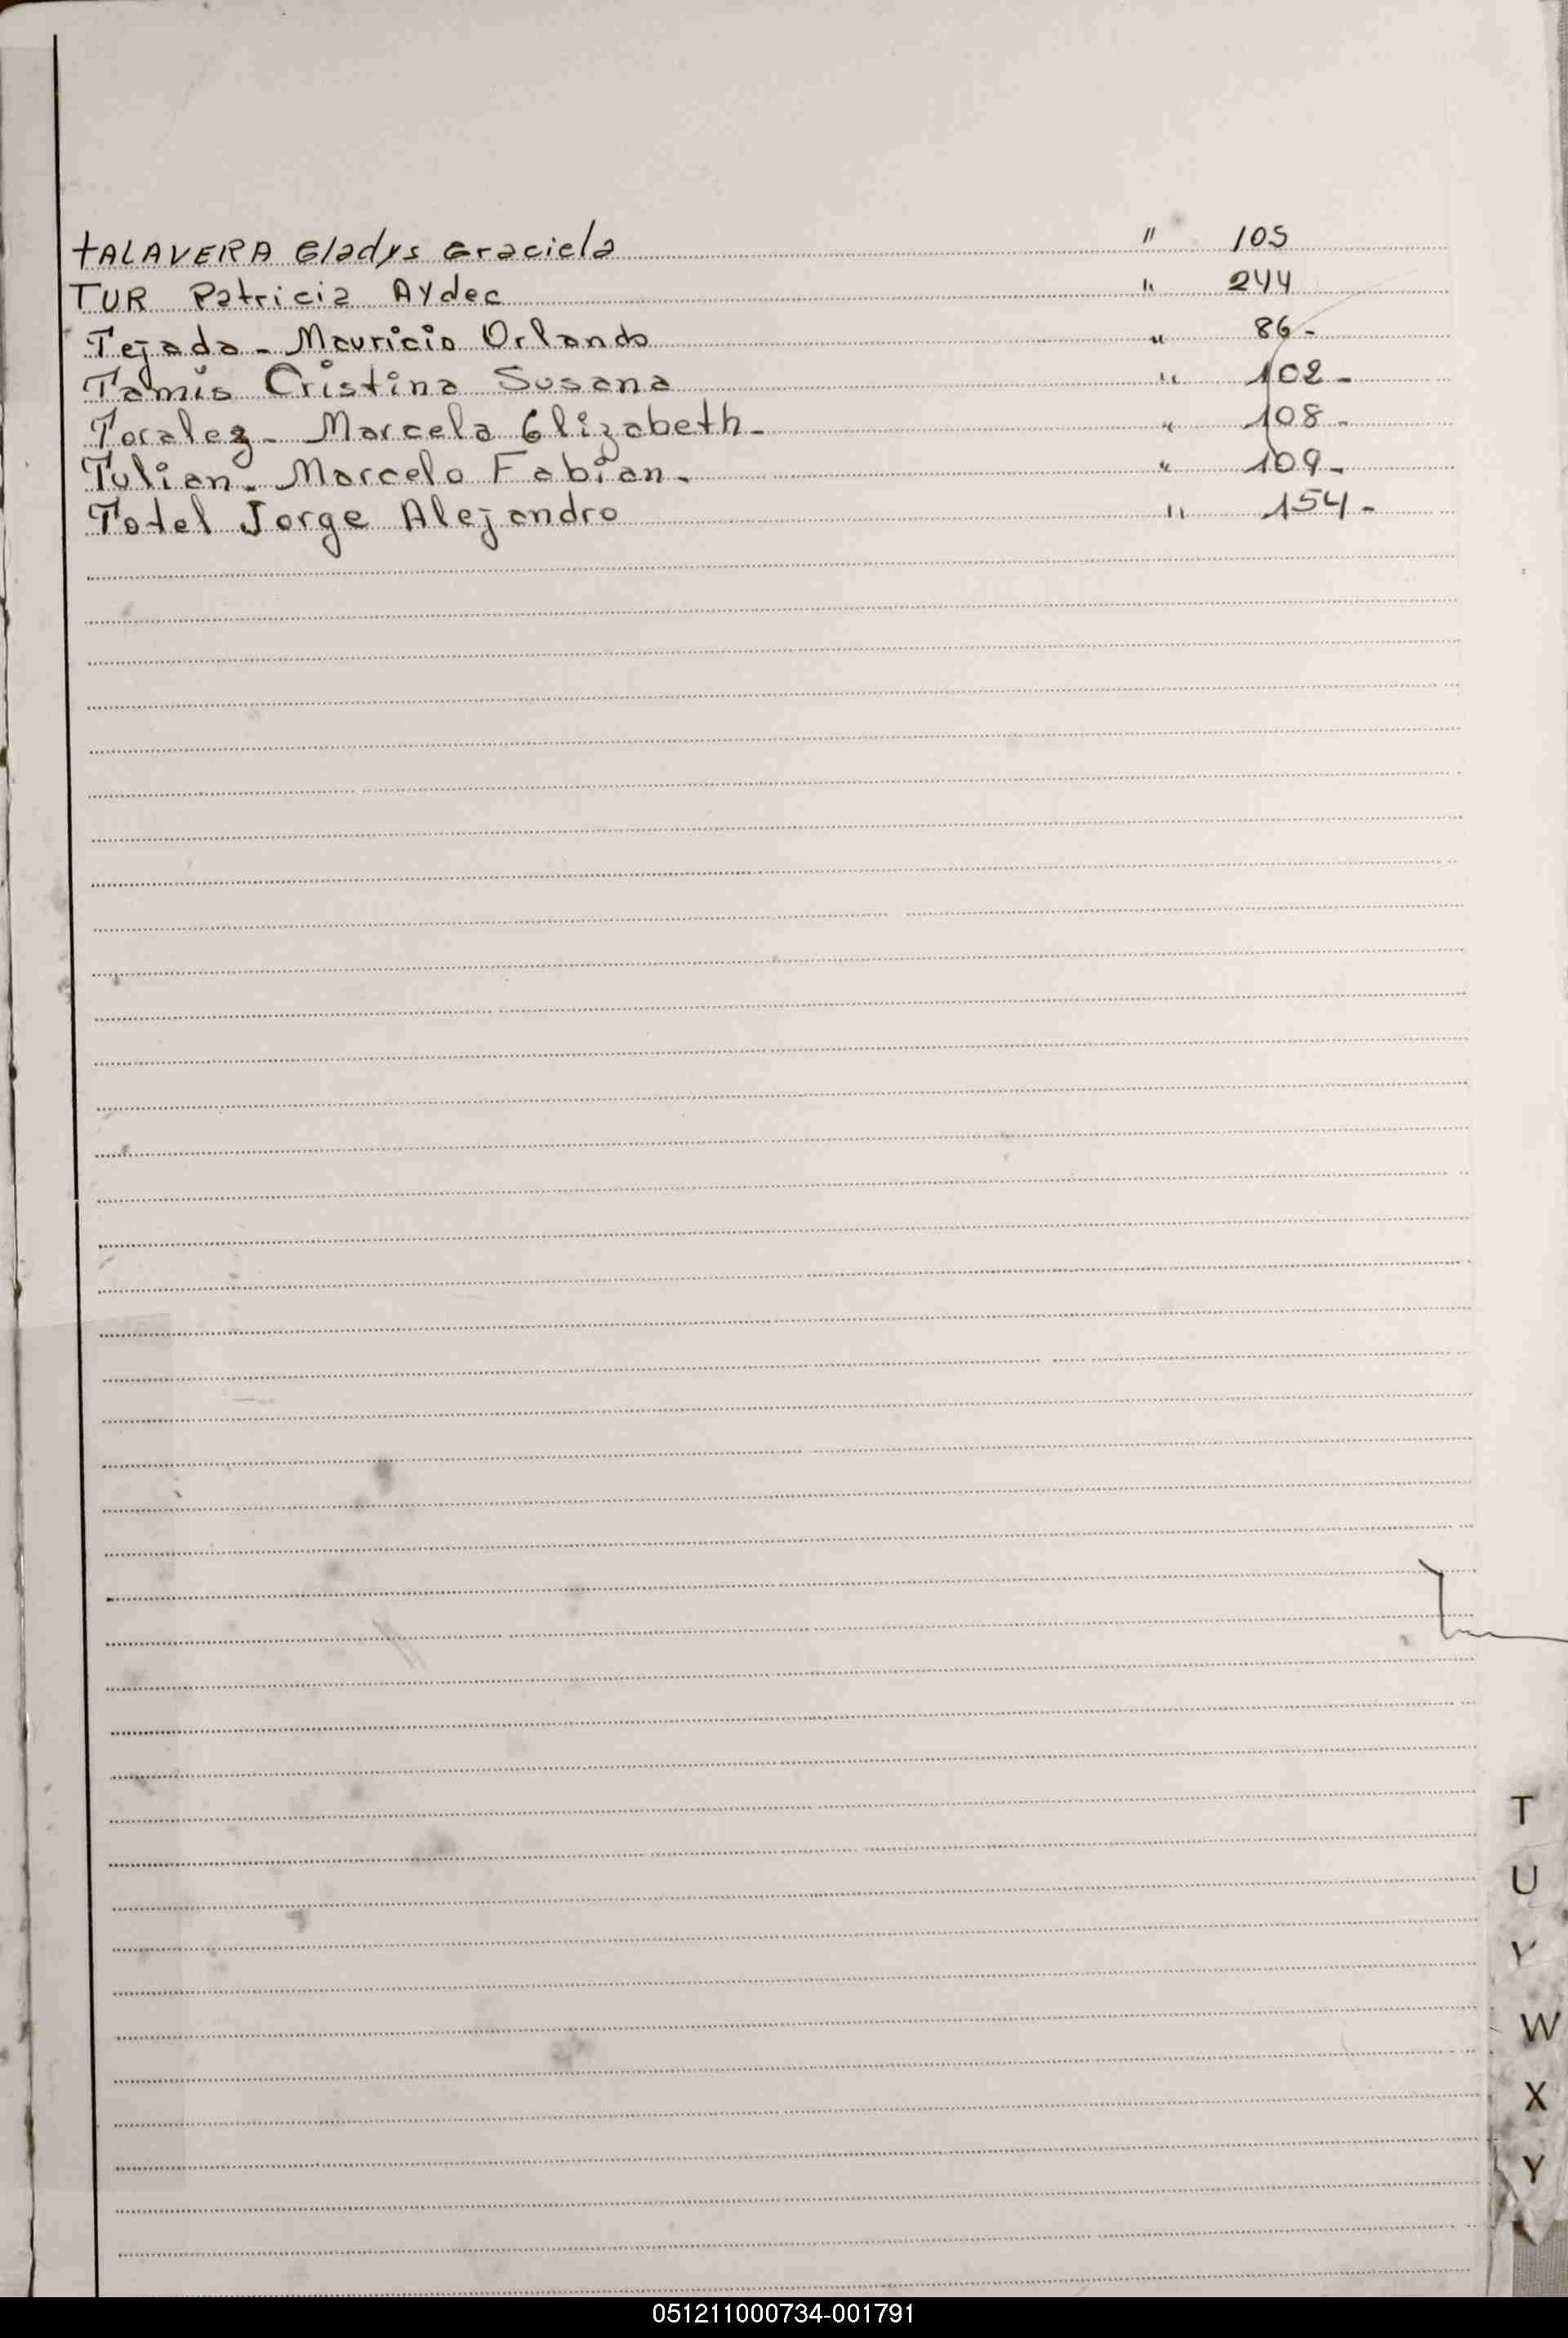 TALAVERA Gladys Graciela " 105
TUR Patricia AYdee " 244
Tejada - Mauricio Orlando " 86 -
Tamis Cristina Susana " 102 -
Toralez - Marcela Elizabeth - " 108 -
Tulian - Marcelo Fabian - " 109 -
Totel Jorge Alejandro " 154 -
T
U
V
W
X
Y
051211000734-001791